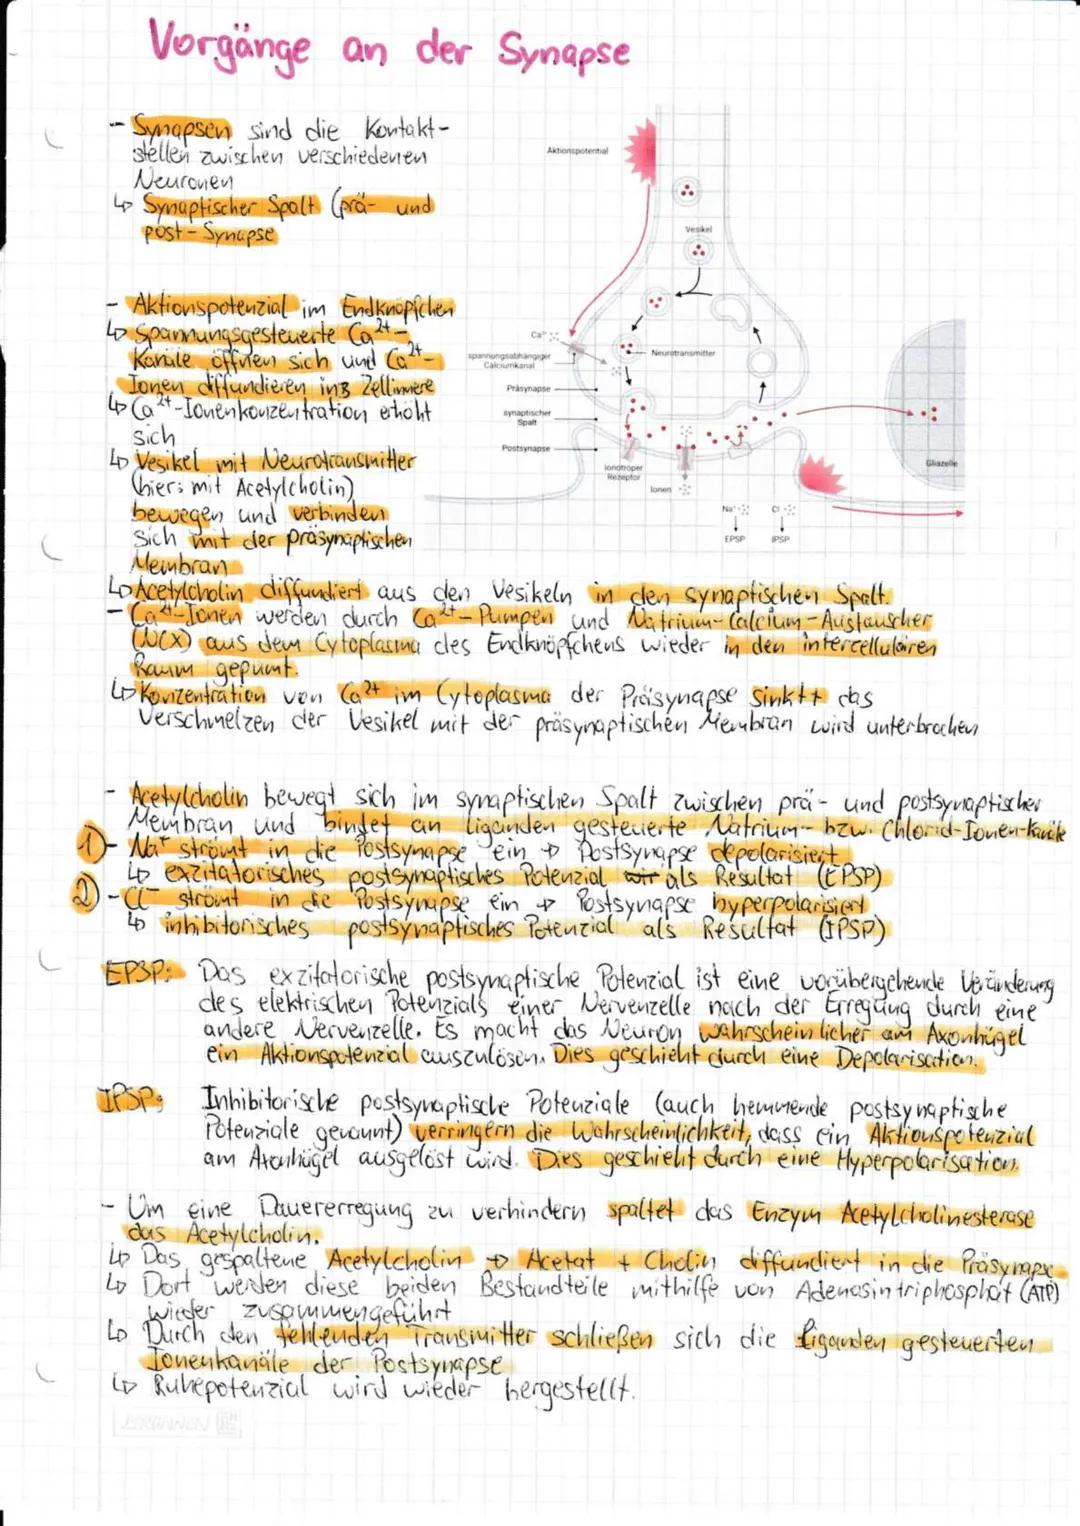 Vorgänge an der Synapse
- Synapsen sind die Kontakt-
stellen zwischen verschiedenen
Neuronen
↳ Synaptischer Spalt (prä- und
post-Synapse
- Aktionspotenzial im Endknöpfchen
↳ Spannungsgesteuerte Ca²⁺-
Kanäle öffnen sich und Ca²⁺-
Ionen diffundieren ins Zellinnere
↳ Ca²⁺-Ionenkonzentration erhöht
sich
↳ Vesikel mit Neurotransmitter
(hier: mit Acetylcholin)
bewegen und verbinden
sich mit der präsynaptischen
Membran
Aktionspotential
Vesikel
Ca²⁺
spannungsabhängiger
Calciumkanal
Neurotransmitter
Präsynapse
synaptischer
Spalt
Postsynapse
Ionotroper
Rezeptor
Ionen
Gliazelle
Na⁺
Cl⁻
EPSP
IPSP
↳ Acetylcholin diffundiert aus den Vesikeln in den synaptischen Spalt.
- Ca²⁺-Ionen werden durch Ca²⁺-Pumpen und Natrium-Calcium-Austauscher
(NCX) aus dem Cytoplasma des Endknöpfchens wieder in den intercellulären
Raum gepumt.
↳ Konzentration von Ca²⁺ im Cytoplasma der Präsynapse sinkt + das
Verschmelzen der Vesikel mit der präsynaptischen Membran wird unterbrochen
- Acetylcholin bewegt sich im synaptischen Spalt zwischen prä- und postsynaptischer
Membran und bindet an liganden gesteuerte Natrium- bzw. Chlorid-Ionen-Kanäle
1) - Na⁺ strömt in die Postsynapse ein → Postsynapse depolarisiert
↳ exzitatorisches postsynaptisches Potenzial als Resultat (EPSP)
2) - Cl⁻ strömt in die Postsynapse ein → Postsynapse hyperpolarisiert
↳ inhibitorisches postsynaptisches Potenzial als Resultat (IPSP)
EPSP: Das exzitatorische postsynaptische Potenzial ist eine vorübergehende Veränderung
des elektrischen Potenzials einer Nervenzelle nach der Erregung durch eine
andere Nervenzelle. Es macht das Neuron wahrscheinlicher am Axonhügel
ein Aktionspotenzial auszulösen. Dies geschieht durch eine Depolarisation.
IPSP: Inhibitorische postsynaptische Potenziale (auch hemmende postsynaptische
Potenziale genannt) verringern die Wahrscheinlichkeit, dass ein Aktionspotenzial
am Axonhügel ausgelöst wird. Dies geschieht durch eine Hyperpolarisation.
- Um eine Dauererregung zu verhindern spaltet das Enzym Acetylcholinesterase
das Acetylcholin.
↳ Das gespaltene Acetylcholin → Acetat + Cholin diffundiert in die Präsynapse
↳ Dort werden diese beiden Bestandteile mithilfe von Adenosintriphosphat (ATP)
wieder zusammengeführt
↳ Durch den fehlenden Transmitter schließen sich die liganden gesteuerten
Ionenkanäle der Postsynapse
↳ Ruhepotenzial wird wieder hergestellt.